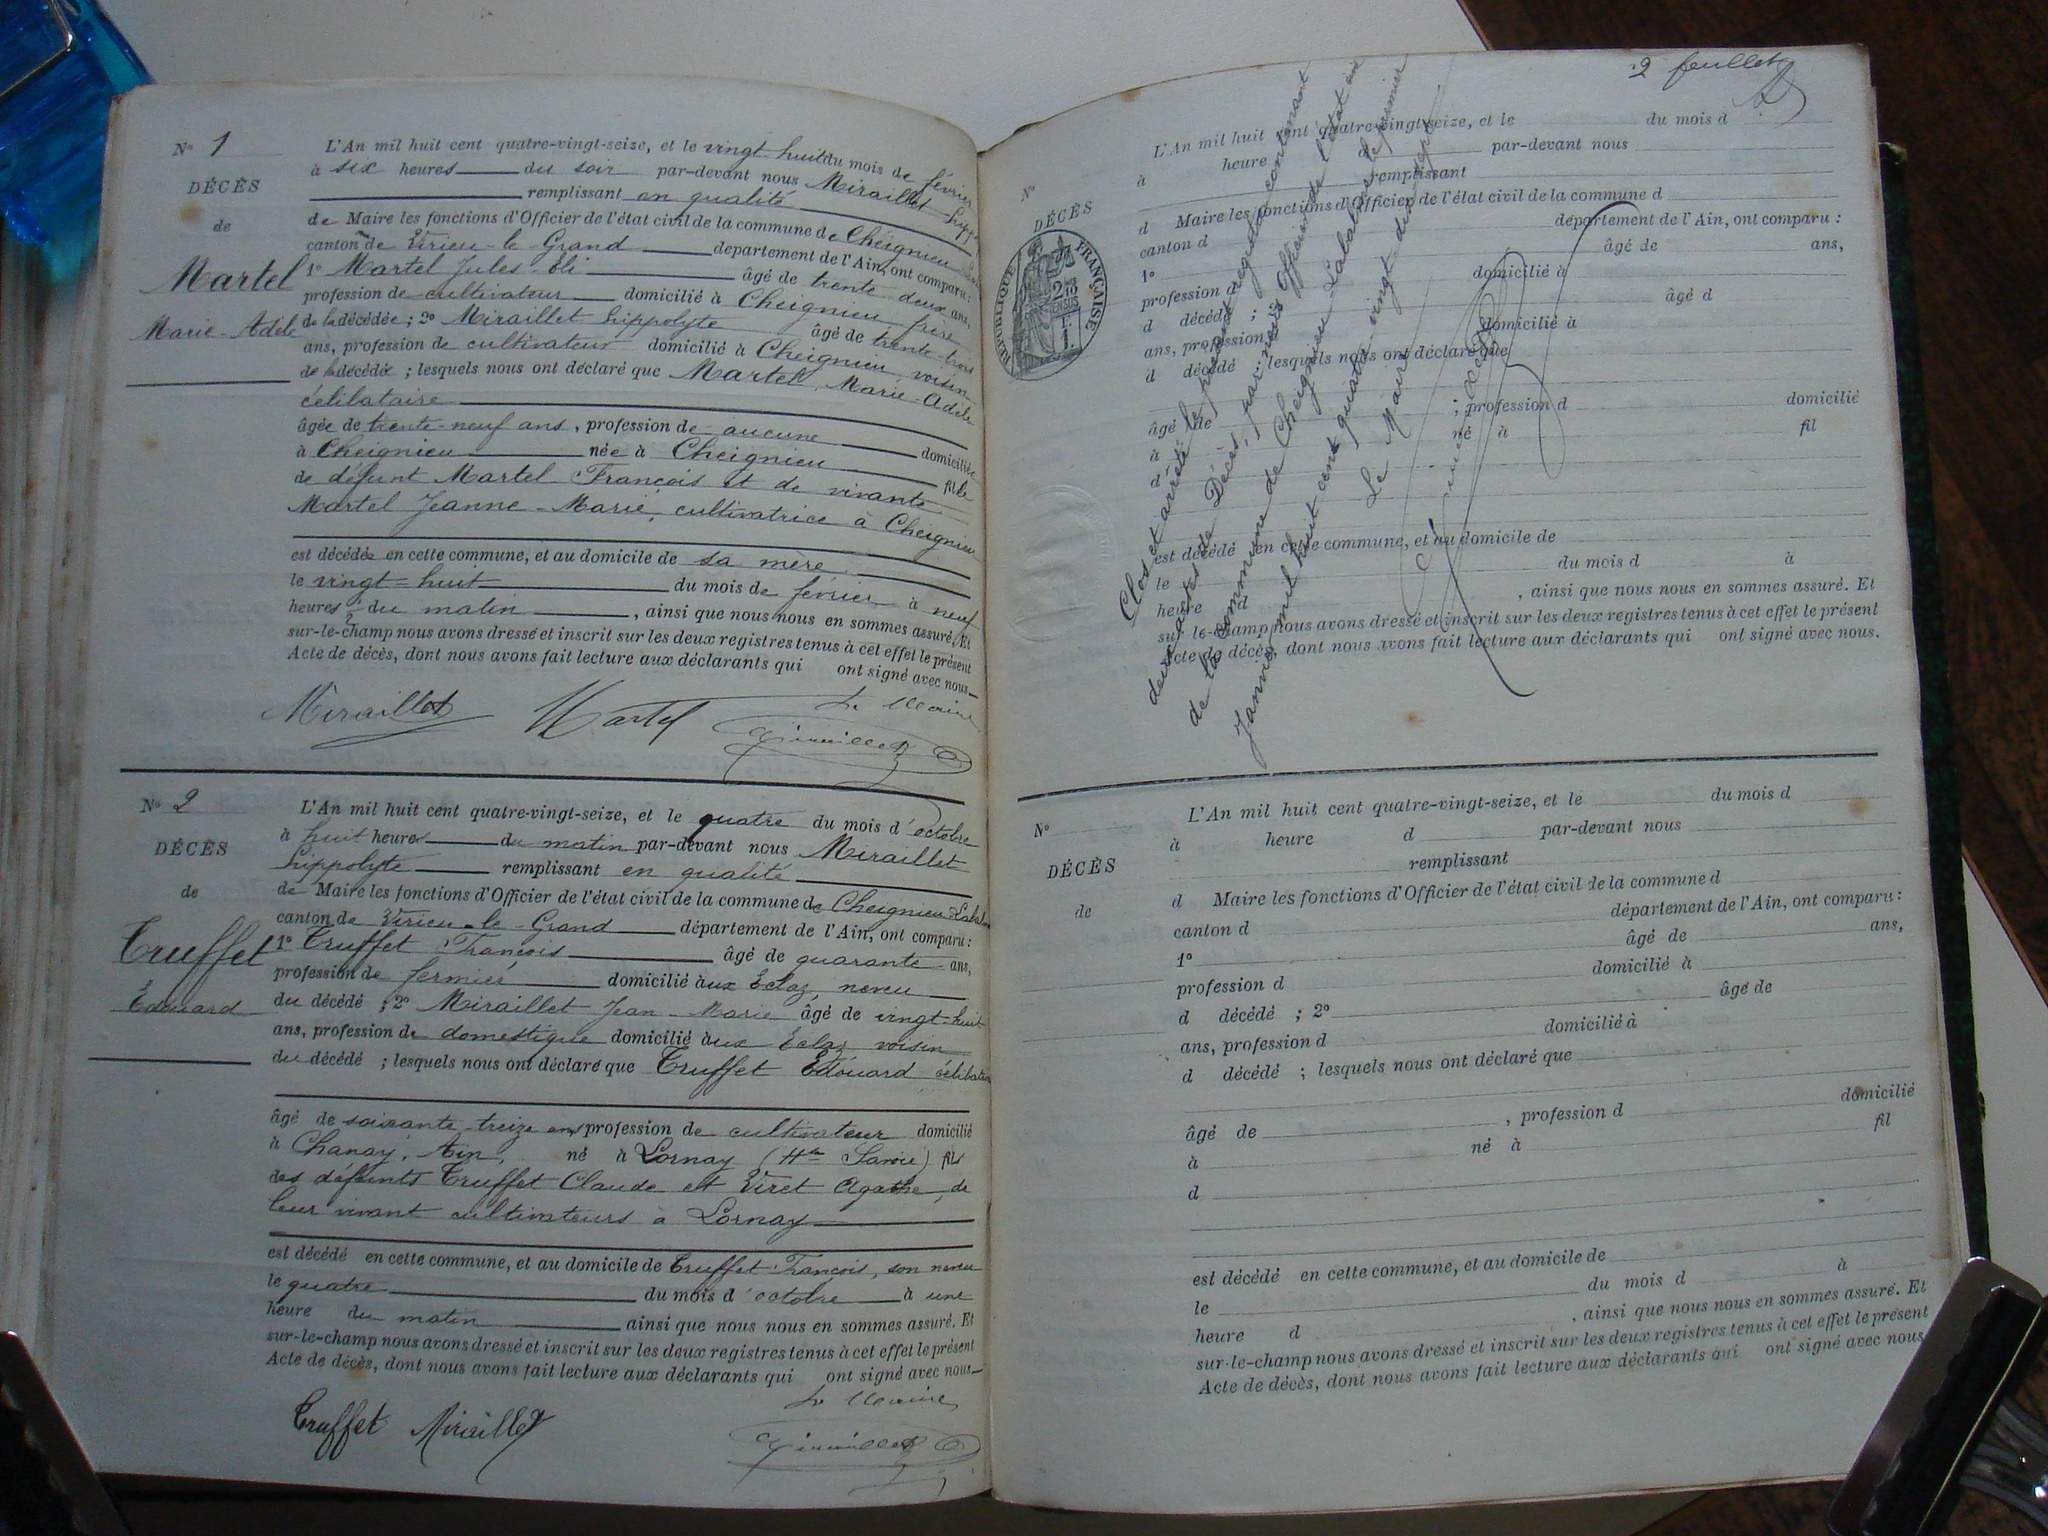 N° 1
DÉCÈS
de
Martel
Marie-Adèle
L'An mil huit cent quatre-vingt-seize, et le vingt-huit du mois de février
à six heures du soir par-devant nous Miraillet
remplissant en qualité
de Maire les fonctions d'Officier de l'état civil de la commune de Cheignieu
canton de Virieu-le-Grand département de l'Ain, ont comparu :
1° Martel Jules-Eli âgé de trente-deux ans,
profession de cultivateur domicilié à Cheignieu, frère
de la décédée ; 2° Miraillet hippolyte âgé de trente-trois
ans, profession de cultivateur domicilié à Cheignieu, voisin
de la décédée ; lesquels nous ont déclaré que Martel, Marie-Adèle
célibataire
âgée de trente-neuf ans, profession de aucune domiciliée
à Cheignieu née à Cheignieu fille
de défunt Martel François et de vivante
Martel Jeanne-Marie, cultivatrice à Cheignieu
est décédée en cette commune, et au domicile de sa mère
le vingt-huit du mois de février à neuf
heures du matin, ainsi que nous nous en sommes assuré. Et
sur-le-champ nous avons dressé et inscrit sur les deux registres tenus à cet effet le présent
Acte de décès, dont nous avons fait lecture aux déclarants qui ont signé avec nous
Miraillet Martel Le Maire
Miraillet
N° 2
DÉCÈS
de
Truffet
Edouard
L'An mil huit cent quatre-vingt-seize, et le quatre du mois d'octobre
à huit heures du matin par-devant nous Miraillet
hippolyte remplissant en qualité
de Maire les fonctions d'Officier de l'état civil de la commune de Cheignieu-Labalme
canton de Virieu-le-Grand département de l'Ain, ont comparu :
1° Truffet François âgé de quarante ans,
profession de fermier domicilié aux Eclaz, neveu
du décédé ; 2° Miraillet Jean-Marie âgé de vingt-huit
ans, profession de domestique domicilié aux Eclaz voisin
du décédé ; lesquels nous ont déclaré que Truffet Edouard célibataire
âgé de soixante-treize ans, profession de cultivateur domicilié
à Chanay, Ain, né à Lornay (Hte Savoie) fils
des défunts Truffet Claude et Viret Agathe, de
leur vivant cultivateurs à Lornay
est décédé en cette commune, et au domicile de Truffet François, son neveu
le quatre du mois d'octobre à une
heure du matin ainsi que nous nous en sommes assuré. Et
sur-le-champ nous avons dressé et inscrit sur les deux registres tenus à cet effet le présent
Acte de décès, dont nous avons fait lecture aux déclarants qui ont signé avec nous
Truffet Miraillet Le Maire
Miraillet
2 feuillet
N°
DÉCÈS
RÉPUBLIQUE FRANÇAISE
L'An mil huit cent quatre-vingt-seize, et le du mois d
à heure d par-devant nous
remplissant
d Maire les fonctions d'Officier de l'état civil de la commune d
canton d département de l'Ain, ont comparu :
1° âgé de ans,
profession d domicilié à
d décédé ; âgé d
ans, profession domicilié à
d décédé lesquels nous ont déclaré que
âgé de ; profession d domicilié
à né à fil
d
est décédé en cette commune, et au domicile de
le du mois d à
heure d , ainsi que nous nous en sommes assuré. Et
sur-le-champ nous avons dressé et inscrit sur les deux registres tenus à cet effet le présent
Acte de décès, dont nous avons fait lecture aux déclarants qui ont signé avec nous.
Clos et arrêté le présent registre contenant
deux actes de Décès, par nous Officier de l'état civil
de la commune de Cheignieu-Labalme le premier
Janvier mil huit cent quatre-vingt-dix-sept
Le Maire
N°
DÉCÈS
de
L'An mil huit cent quatre-vingt-seize, et le du mois d
à heure d par-devant nous
remplissant
d Maire les fonctions d'Officier de l'état civil de la commune d
canton d département de l'Ain, ont comparu :
1° âgé de ans,
profession d domicilié à
d décédé ; 2° âgé de
ans, profession d domicilié à
d décédé ; lesquels nous ont déclaré que
âgé de , profession d domicilié
à né à fil
d
est décédé en cette commune, et au domicile de
le du mois d à
heure d , ainsi que nous nous en sommes assuré. Et
sur-le-champ nous avons dressé et inscrit sur les deux registres tenus à cet effet le présent
Acte de décès, dont nous avons fait lecture aux déclarants qui ont signé avec nous